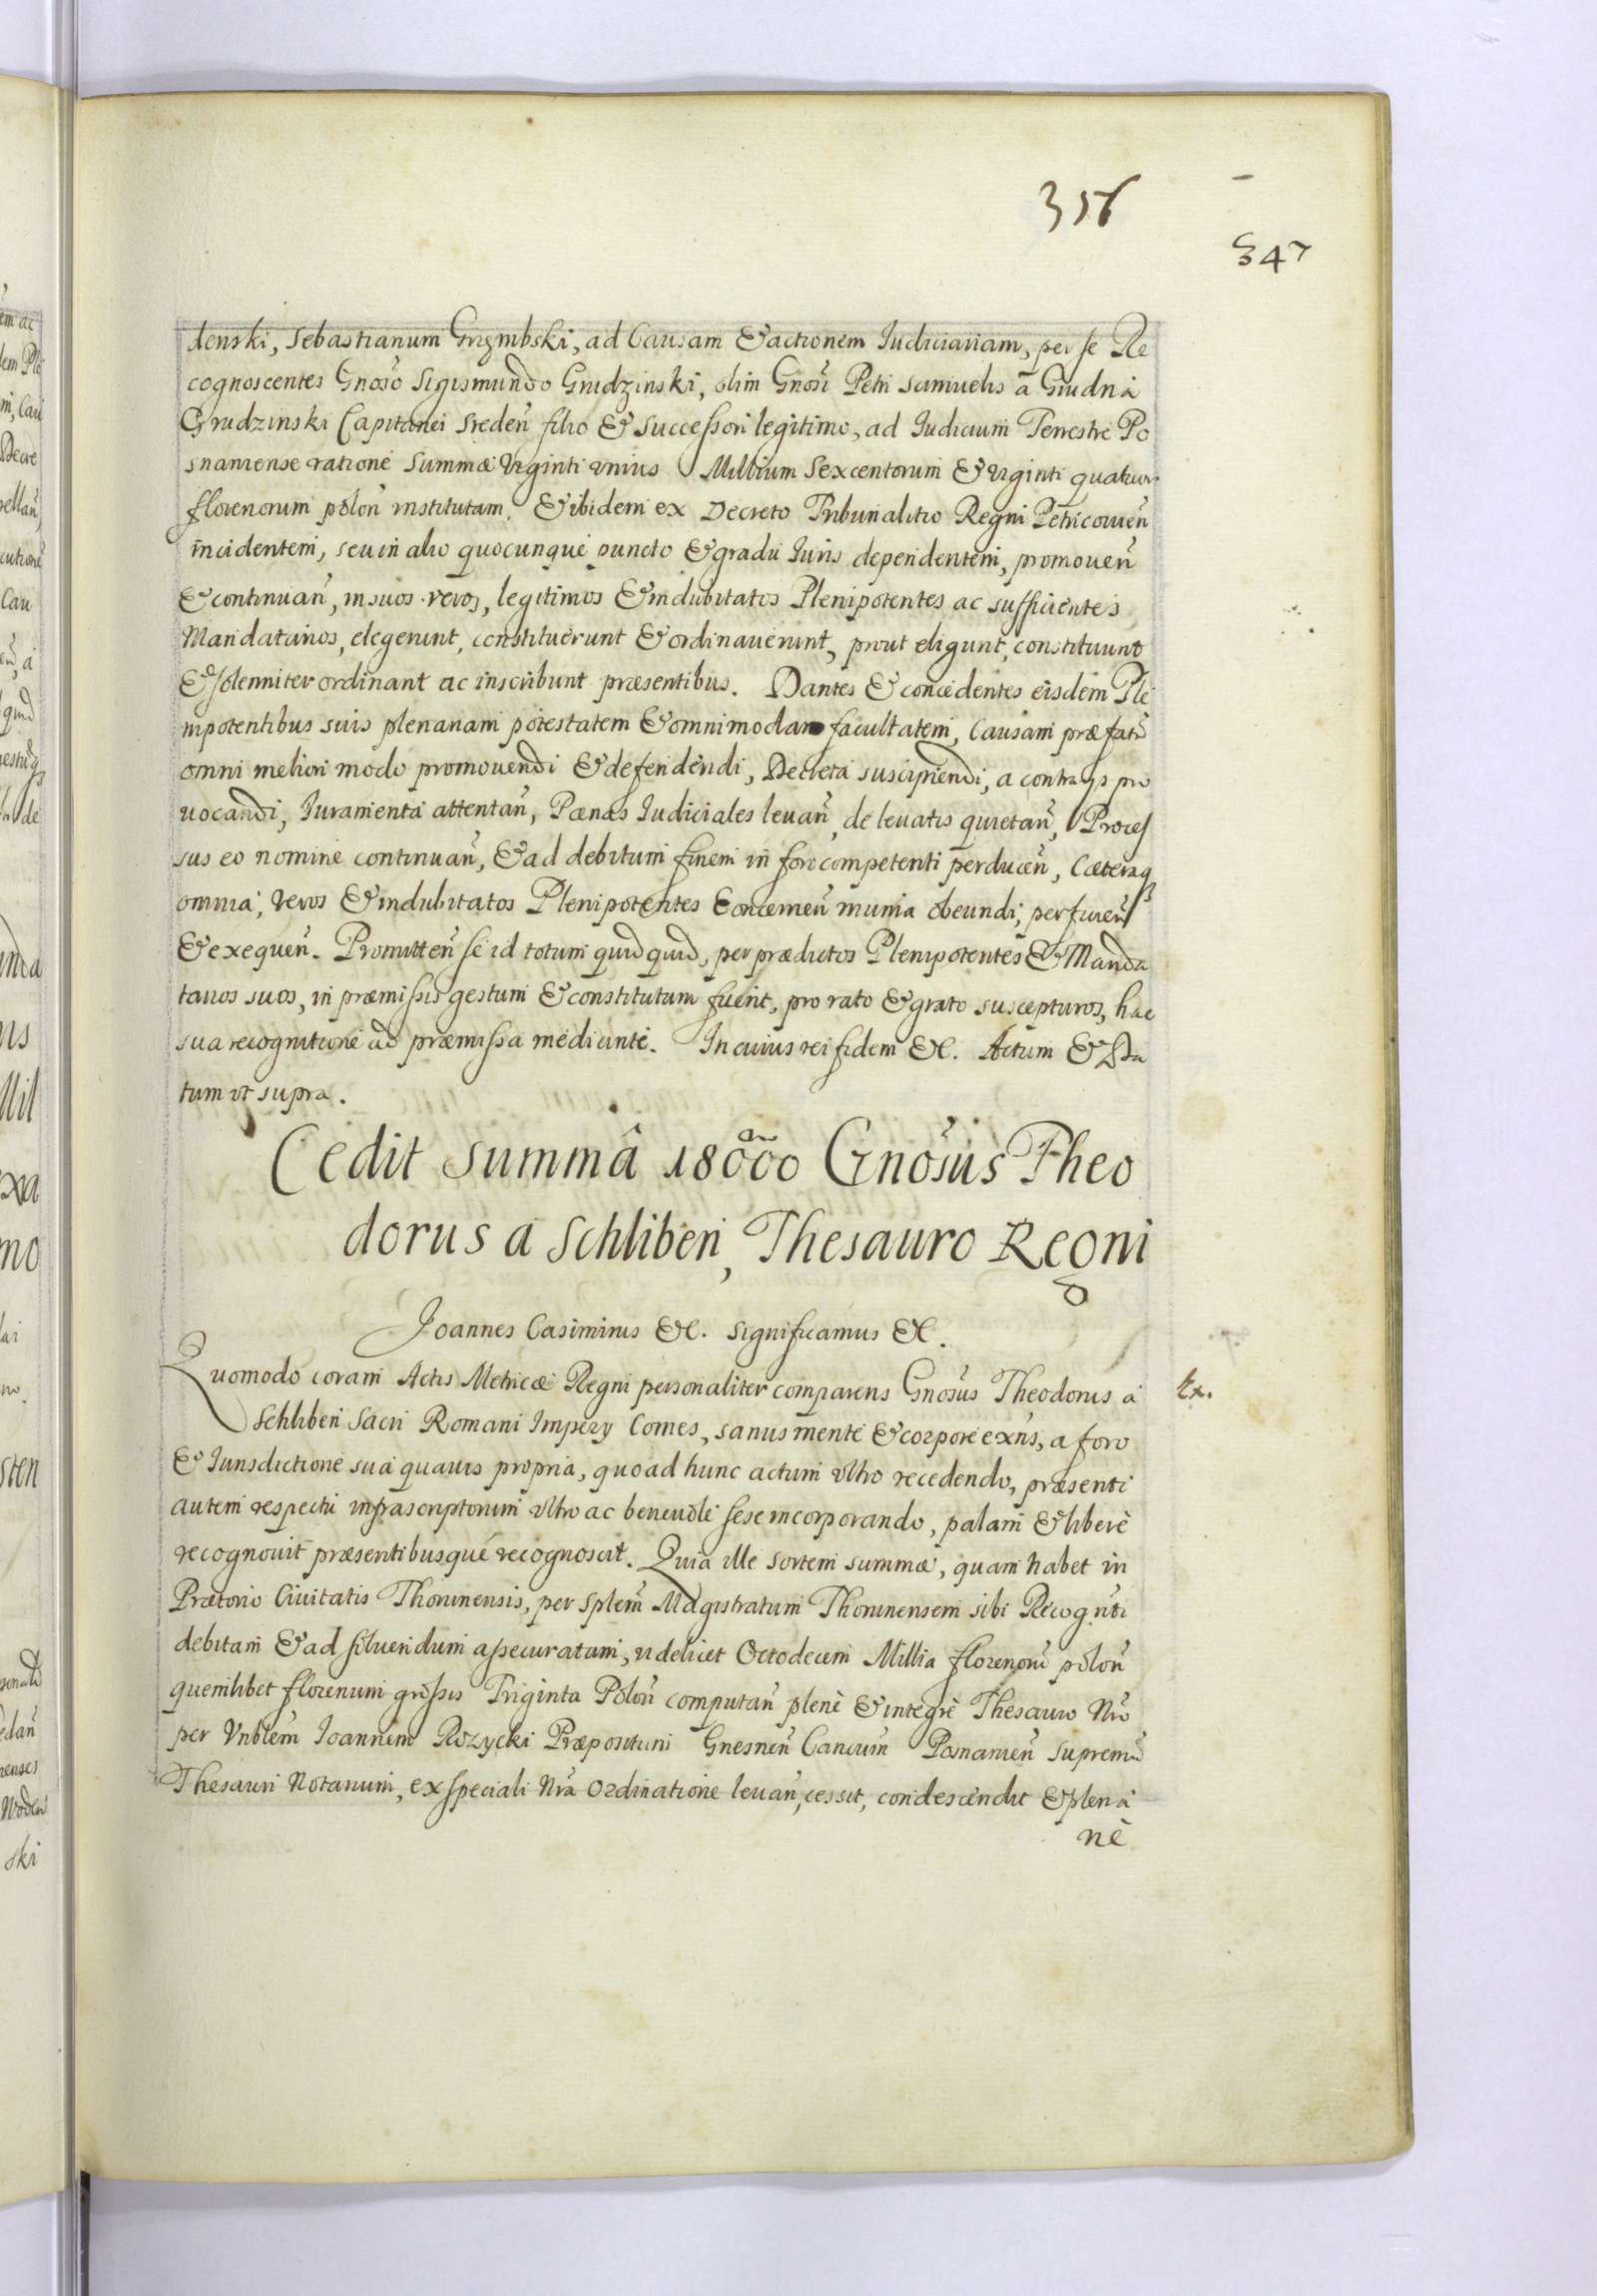 356
347
denski, Sebastianum Grzmbski, ad Causam & actionem Iudiciariam, per se Re
cognoscentes Gnoso Sigismundo Grudzinski, olim Gnosi Petri Samuelis a Grudna
Grudzinski Capitanei Sreden filio & Successori legitimo, ad Iudicium Terrestre Po
snaniense ratione Summæ Viginti unius Millium Sexcentorum & viginti quatuor
florenorum polon institutam. & ibidem ex Decreto Tribunalitio Regni Petricouien
incidentem, seu in alio quocunque puncto & gradu Iuris dependentem, promouen
& continuan, in suos veros, legitimos & indubitatos Plenipotentes ac sufficientes
Mandatarios, elegerunt, constituerunt & ordinauerunt, prout eligunt, constituunt
& solenniter ordinant ac inscribunt præsentibus. Dantes & concedentes eisdem Ple
nipotentibus suis plenariam potestatem & omnimodam facultatem, Causam præfatā
omni meliori modo promouendi & defendendi, Decreta suscipiendi, a contrarys pro
uocandi, Iuramenta attentan, Pænas Iudiciales leuan, de leuatis quietan, Proces
sus eo nomine continuan, & ad debitum finem in foro competenti perducen, Cæteraq₃
omnia, veros & indubitatos Plenipotentes Concernen munia obeundi, perfuren
& exequen. Promitten se id totum quidquid, per prædictos Plenipotentes & Manda
tarios suos, in præmissis gestum & constitutum fuerit, pro rato & grato suscepturos, hac
sua recognitione ad præmissa mediante. In cuius rei fidem &c. Actum & Da
tum vt supra.
Cedit Summâ 18000 Gnosus Theo
dorus a Schliben, Thesauro Regni
Joannes Casimirus &c. Significamus &c.
Quomodo coram Actis Metricæ Regni personaliter comparens Gnosus Theodorus a
Ex.
Schliben Sacri Romani Impery Comes, sanus mente & corpore exns, a foro
& Iurisdictione sua quauis propria, quoad hunc actum vltro recedendo, præsenti
autem respectu infrascriptorum vltro ac beneuole sese incorporando, palam & liberè
recognouit præsentibusque recognoscit. Quia ille sortem summæ, quam habet in
Prætorio Ciuitatis Thorunensis, per Splem Magistratum Thorunensem sibi Recognti
debitam & ad soluendum assecuratam, videlicet Octodecem Millia florenorū polon
quemlibet florenum grossis Triginta Polon computan plenè & integrè Thesauro Nro
per Vnblem Ioannem Rozycki Præpositum Gnesnen Cancum Posnanien Supremū
Thesauri Notarium, ex speciali Nra Ordinatione leuan, cessit, condescendit & plena
nè